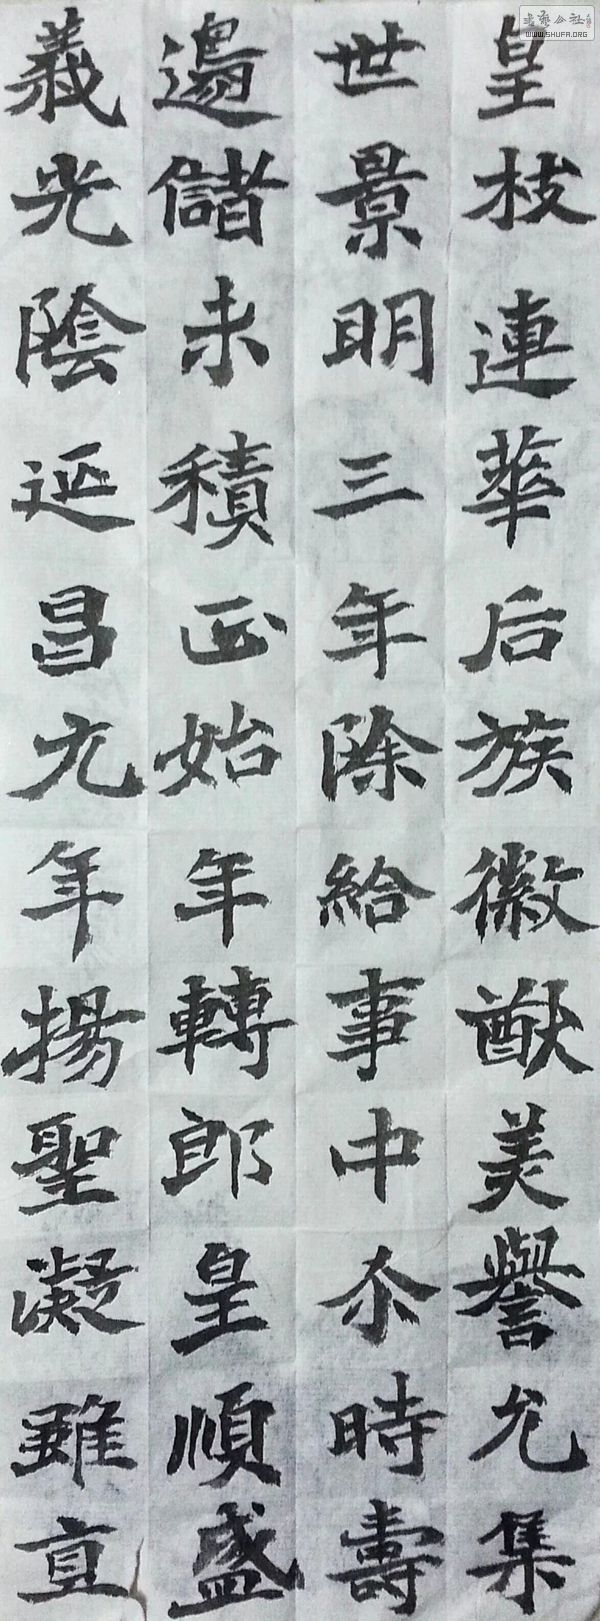 皇枝連華后族徽猷美譽允集
世景明三年除給事中尒時壽
邊儲未積正始年轉郎皇順盛
義光陰延昌元年揚聖凝雖直
书艺公社
WWW.SHUFA.ORG